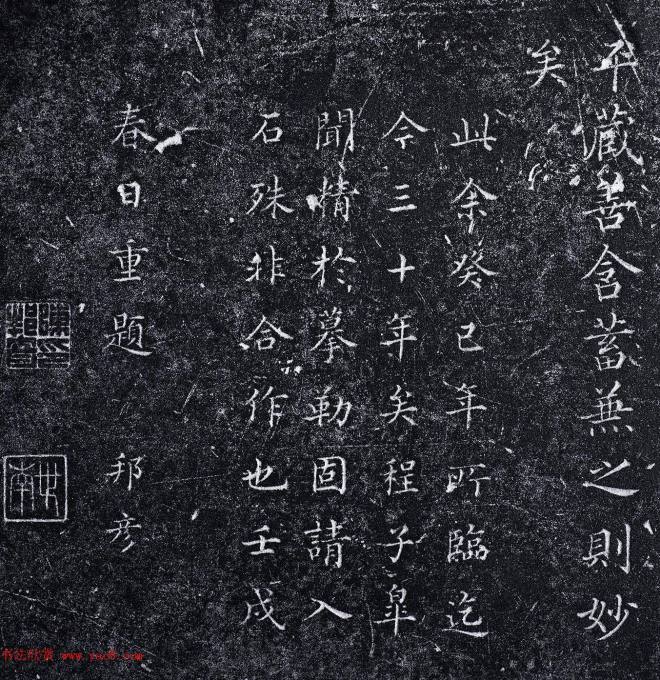 平藏善含蓄兼之則妙
矣
此余癸巳年所臨迄
今三十年矣程子皐
聞精於摹勒固請入
石殊非合作也壬戌
春日重題 邦彥
世南
书法欣赏 www.yac8.com